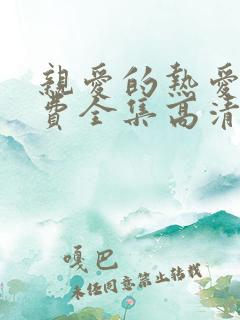 親愛的熱愛
費全集高清
嘎巴
未经同意禁止转载